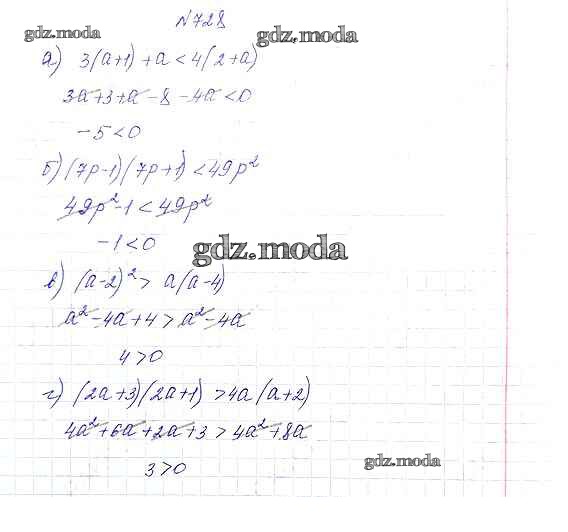 №728
gdz.moda
gdz.moda
а) 3(a+1)+a<4(2+a)
3a+3+a-8-4a<0
-5<0
б) (7p-1)(7p+1)<49p²
49p²-1<49p²
-1<0
gdz.moda
в) (a-2)²> a(a-4)
a²-4a+4>a²-4a
4>0
г) (2a+3)(2a+1)>4a(a+2)
4a²+6a+2a+3>4a²+8a
3>0
gdz.moda